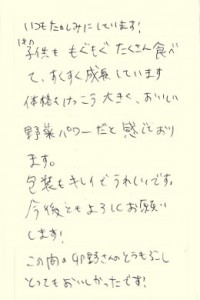 いつもたのしみにしています!
子供も もぐもぐ たくさん食べ
て、すくすく成長しています
体格もけっこう大きく、おいしい
野菜パワーだと感じており
ます。
包装もキレイでうれしいです。
今後ともよろしくお願い
します!
この間の 卯野さんのとうもろこし
とってもおいしかったです!